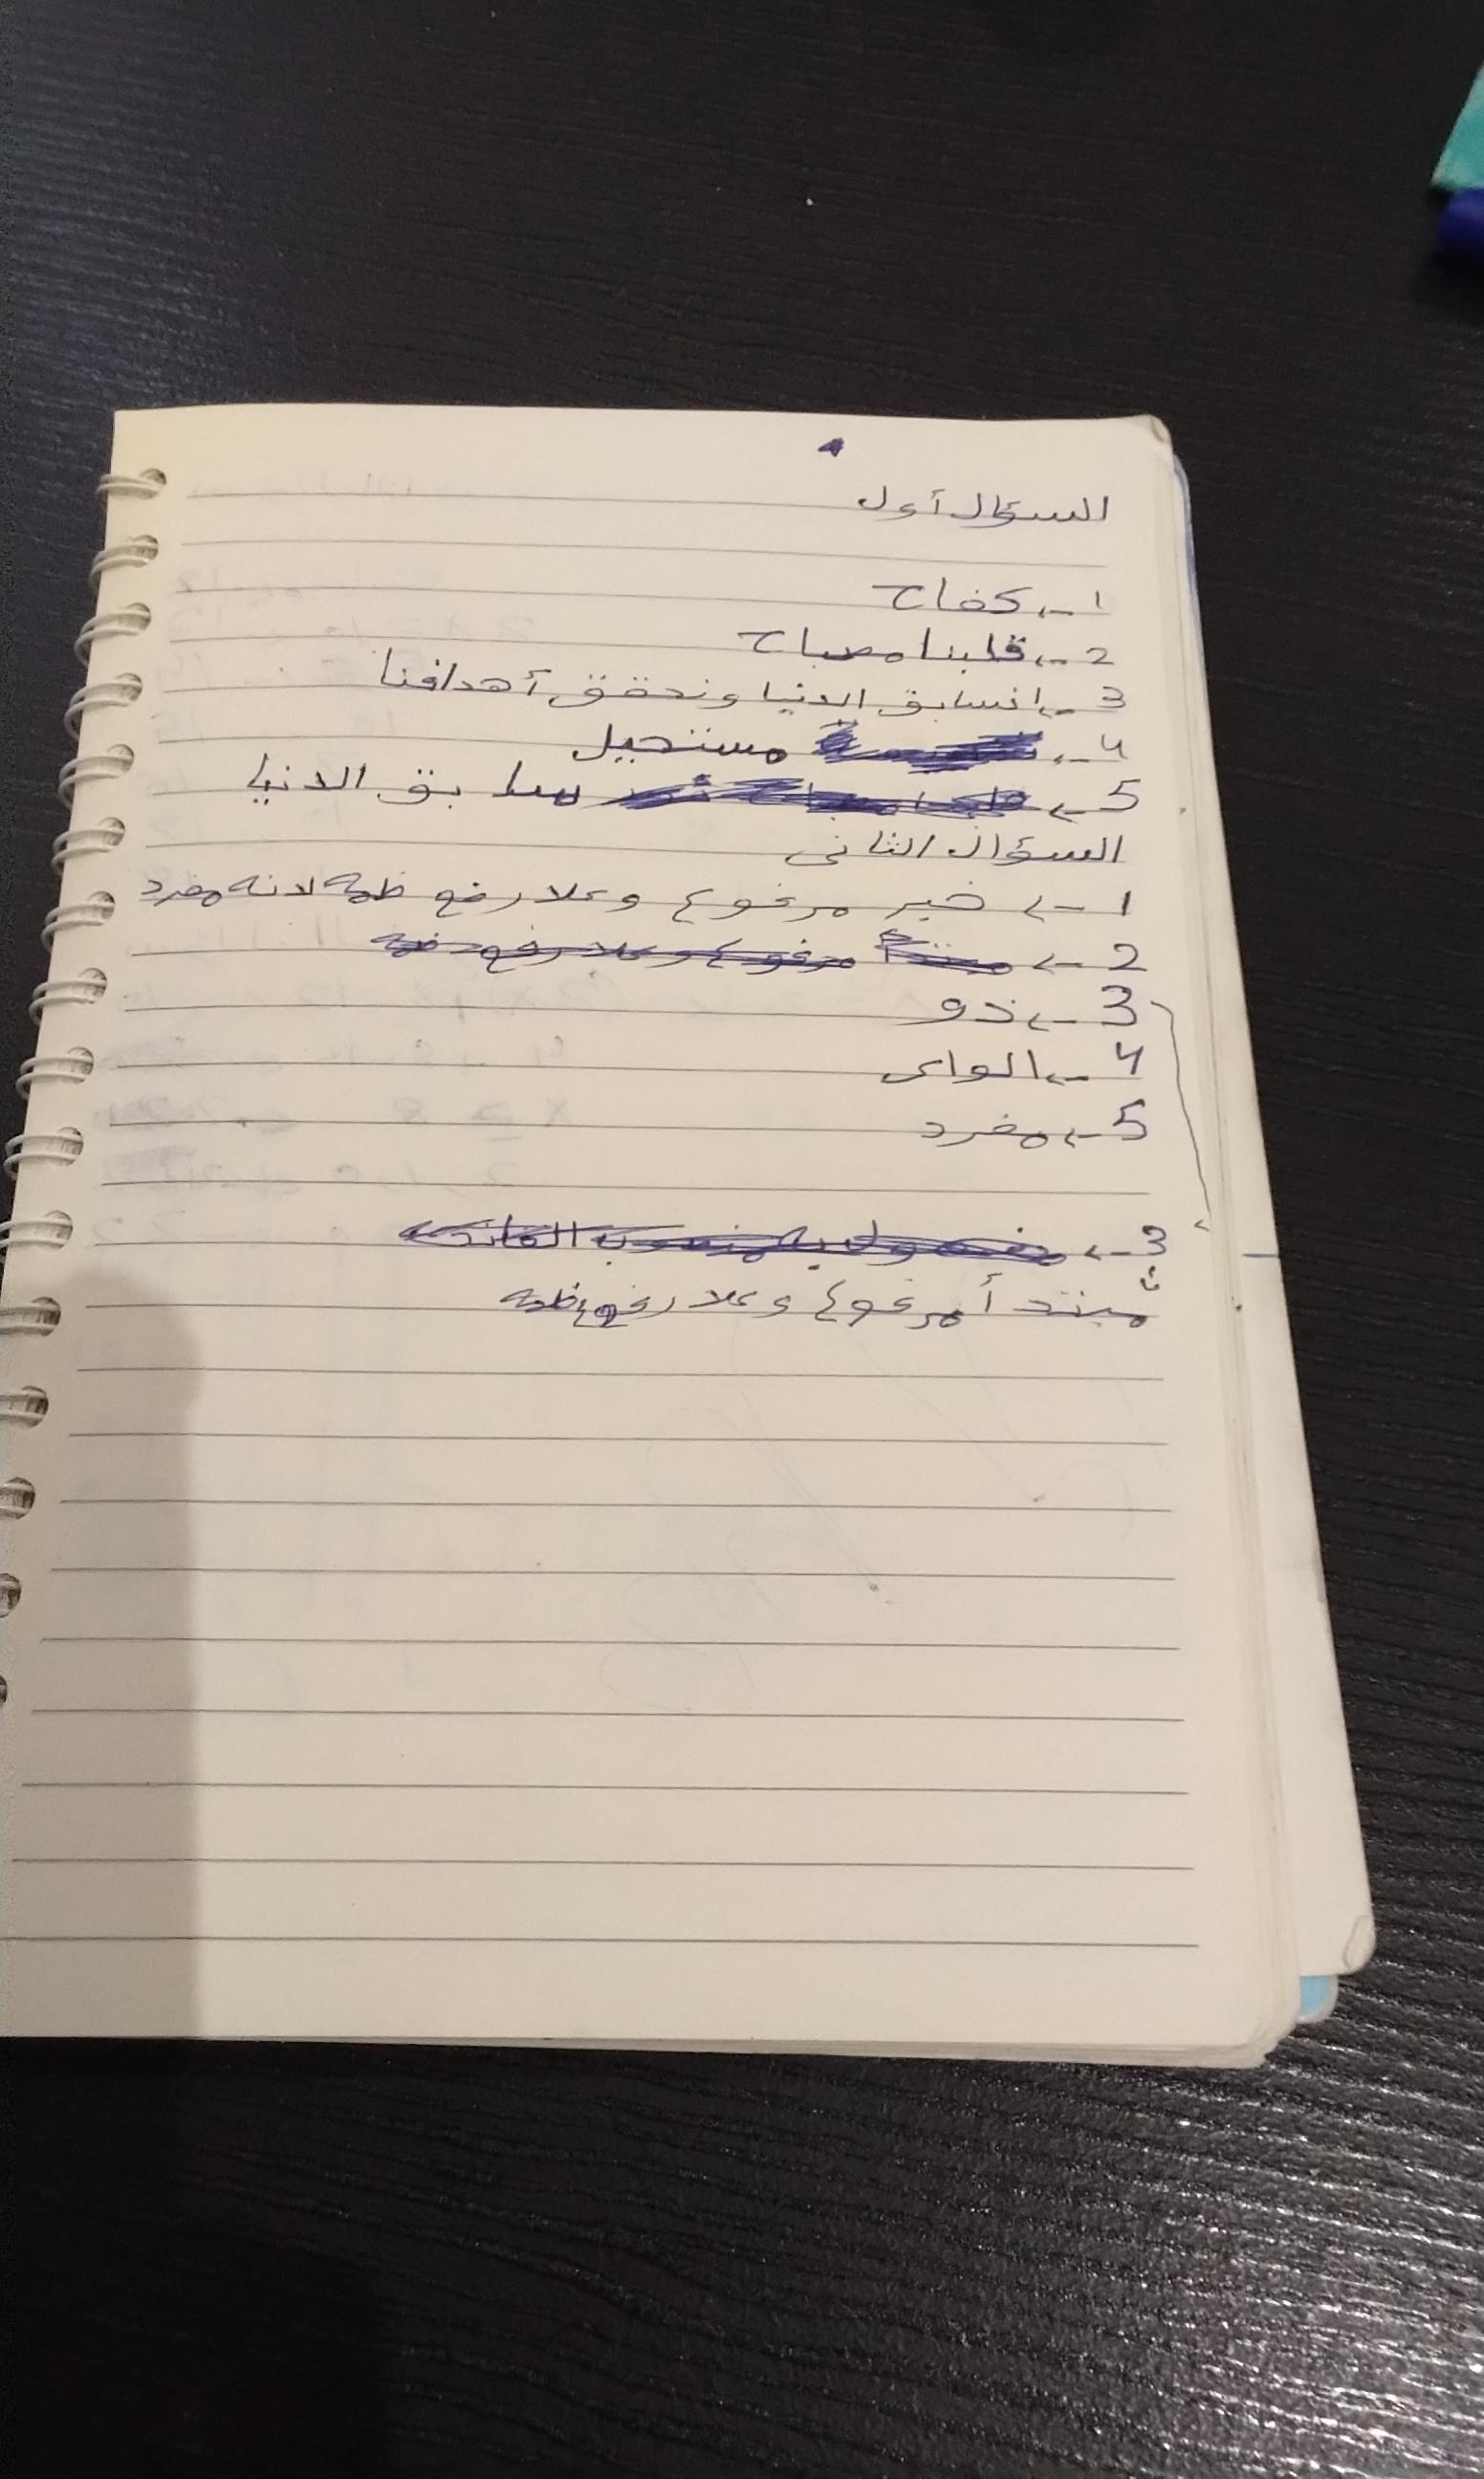 السؤال أول
1 -> كفاح
2 -> قلبنا مصباح
3 -> انسابق الدنيا ونحقق أهدافنا
4 -> مستحيل
5 -> بق الدنيا
السؤال الثاني
1 -> خبر مرغوع وعلا رفع ظمه لانه مفرد
2 -> مرغوع وعلا رفع
3 -> ذو
4 -> الواى
5 -> مفرد
3 ->
مبتد أ مرغوع وعلا رفع ظمه